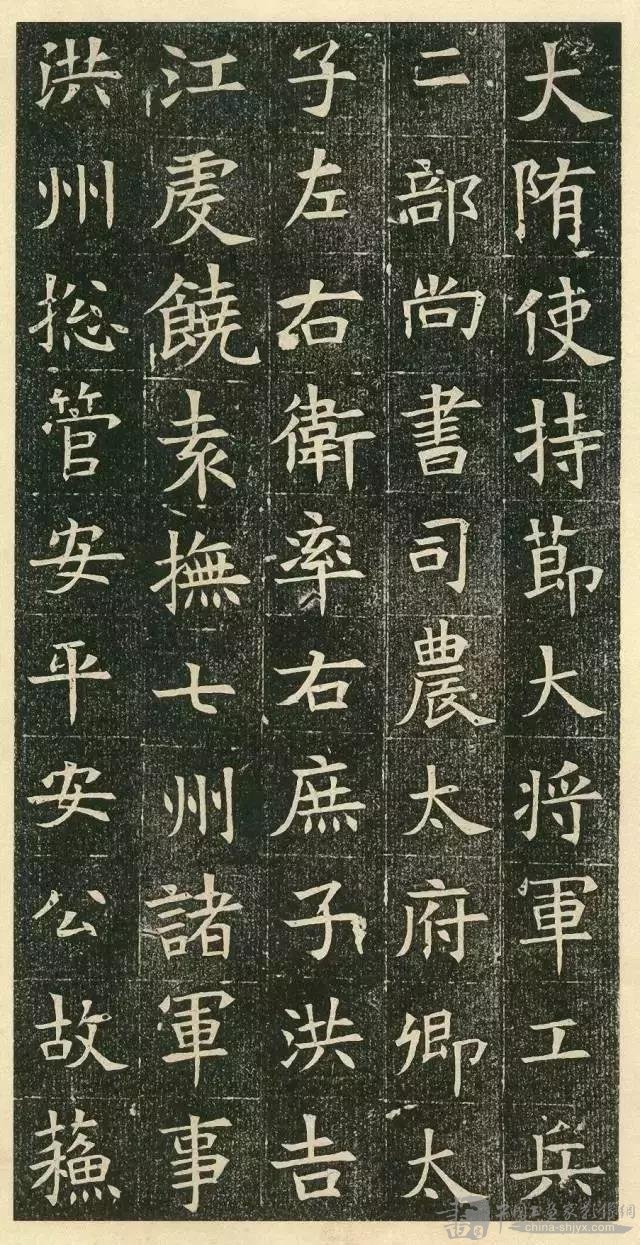 大隋使持節大將軍工兵
二部尚書司農太府卿太
子左右衛率右庶子洪吉
江虔饒袁撫七州諸軍事
洪州捴管安平安公故蘓
中国书画家影像网
china-shjyx.com